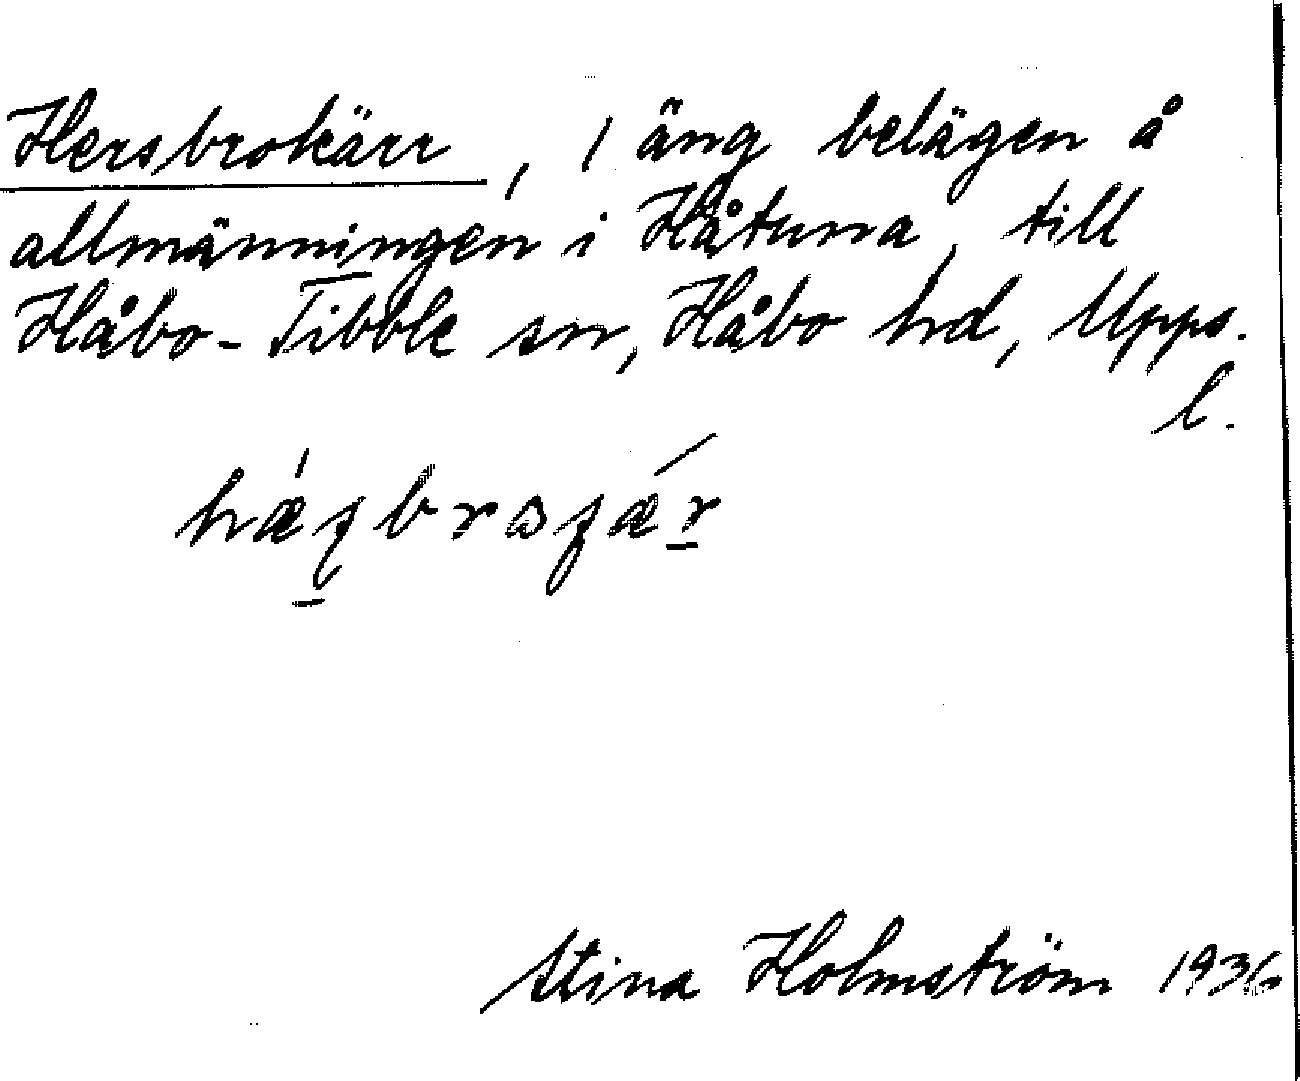 Hersbrokärr, 1 äng belägen å
allmänningen i Håtuna, till
Håbo-Tibble sn, Håbo hd, Upps.
l.
Stina Holmström 1936